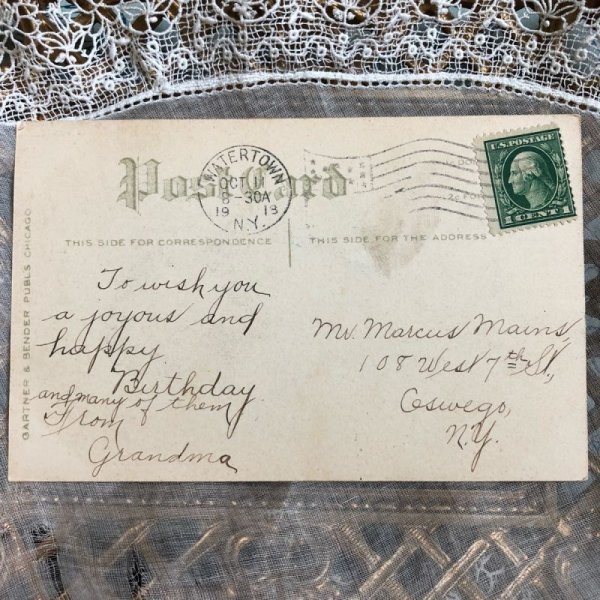 Post Card
WATERTOWN
OCT 11
8-30A
19 13
N.Y.
U.S. POSTAGE
1 CENT 1
THIS SIDE FOR CORRESPONDENCE
THIS SIDE FOR THE ADDRESS
GARTNER & BENDER PUBLS CHICAGO
To wish you
a joyous and
happy
Birthday
and many of them
From
Grandma
Mr. Marcus Mains,
108 West 7th St.,
Oswego,
N.Y.